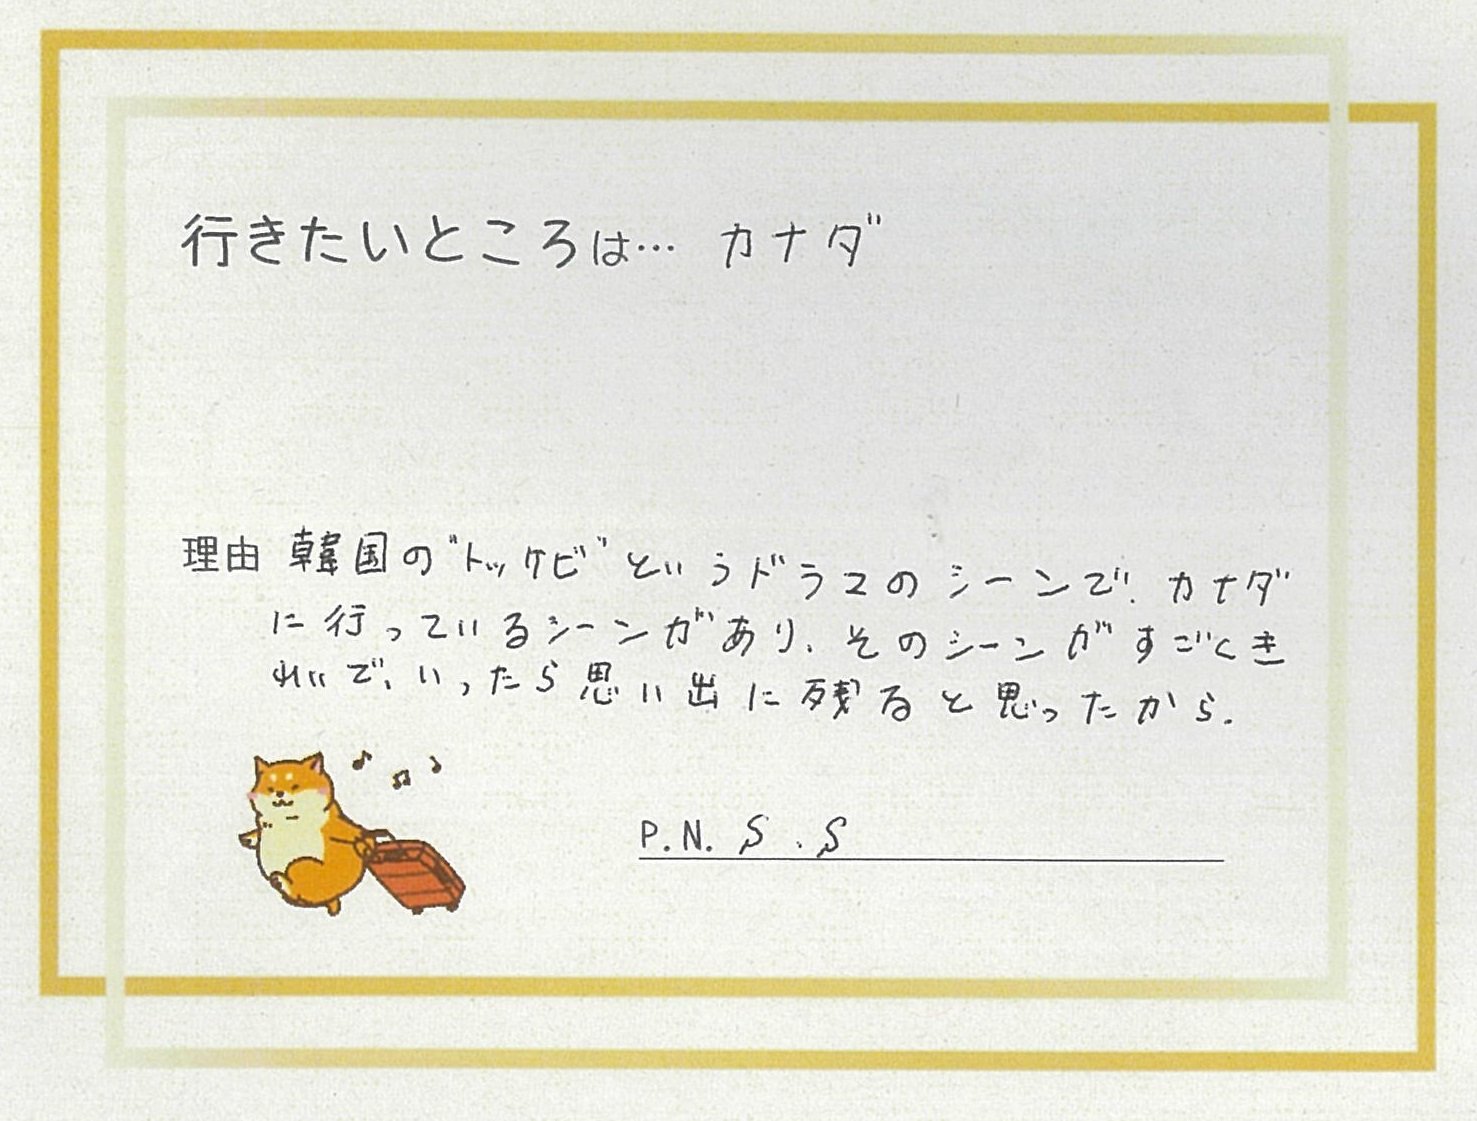 行きたいところは… カナダ
理由 韓国の"トッケビ"というドラマのシーンで、カナダ
に行っているシーンがあり、そのシーンがすごくき
れいで、いったら思い出に残ると思ったから。
P.N. S.S